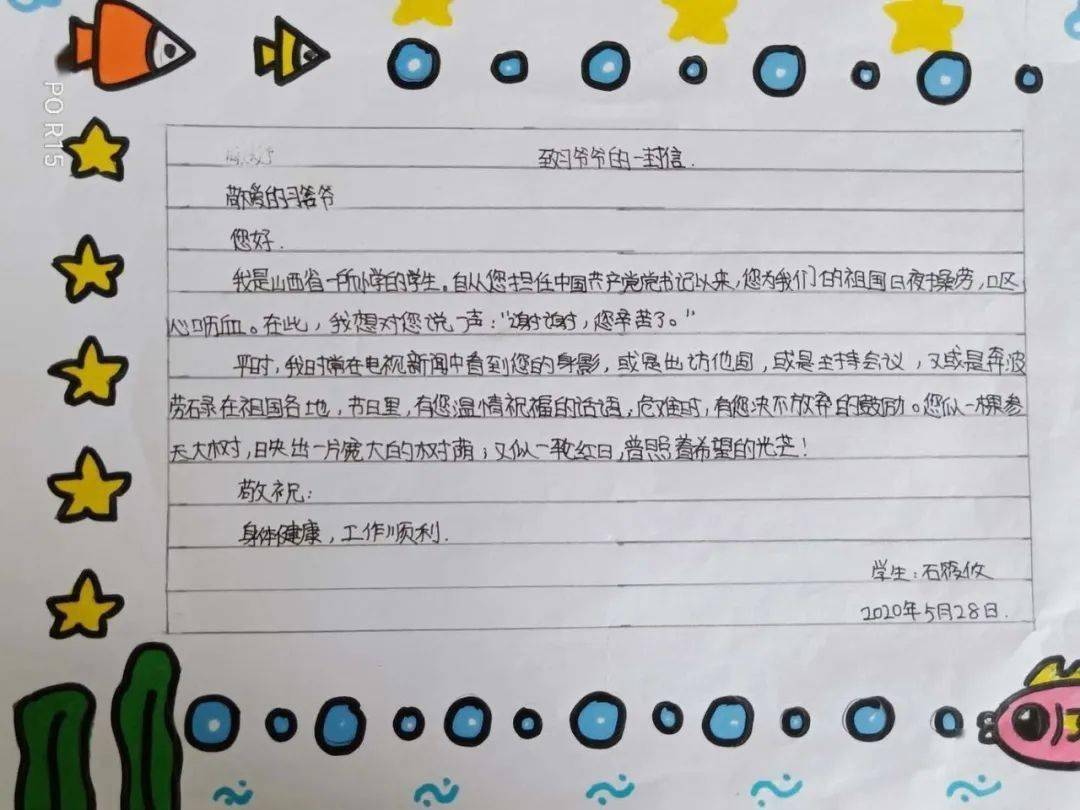 致习爷爷的一封信.
敬爱的习爷爷
您好.
我是山西省一所小学的学生。自从您担任中国共产党党书记以来，您为我们的祖国日夜操劳，呕
心呖血。在此，我想对您说一声：“谢谢，您辛苦了。”
平时，我时常在电视新闻中看到您的身影，或是出访他国，或是主持会议，又或是奔波
劳碌在祖国各地，节日里，有您温情祝福的话语，危难时，有您决不放弃的鼓励。您似一棵参
天大树，映出一片宽大的树荫；又似一轮红日，普照着希望的光芒！
敬祝：
身体健康，工作顺利.
学生：石
2020年5月28日.
PO R15